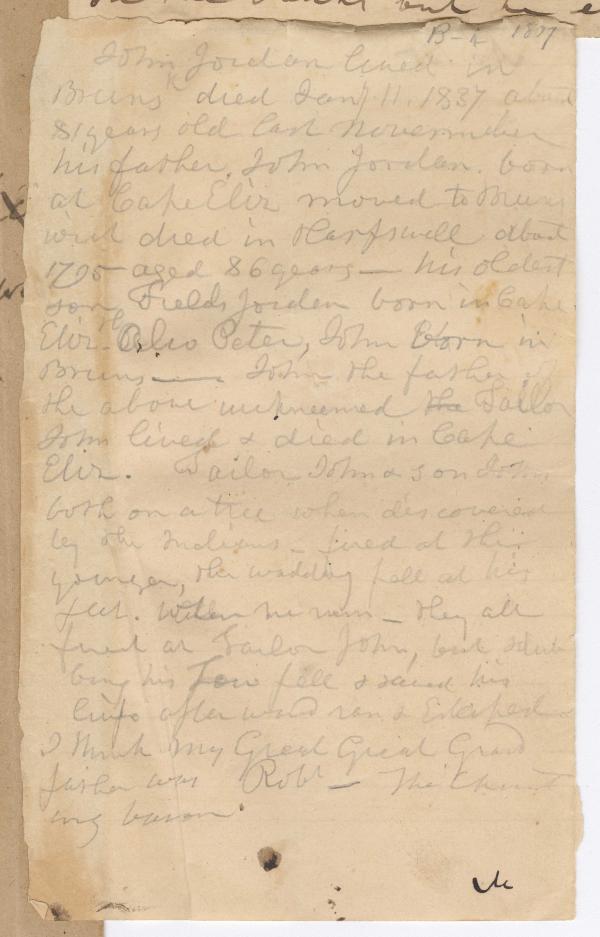 B-4 1837
John Jordan lived in
Bruns^k died Jany 11. 1837 about
81 years old last November
his father. John Jordan. born
at Cape Eliz moved to Bruns
wick died in Harpswell about
1795 aged 86 years — his oldest
son, Fields Jordan born in Cape
Eliz. Also Peter, John Born in
Bruns — John the father of
the above nicknamed the Tailor
John lived & died in Cape
Eliz. Tailor John & son John
both on a tree when discovered
by the Indians — fired at the
younger, the wadding fell at his
feet. When he run — they all
fired at Tailor John, but
his fell & saved his
life afterward ran & Escaped
I think My Great Great Grand
father was Robt — The
ing